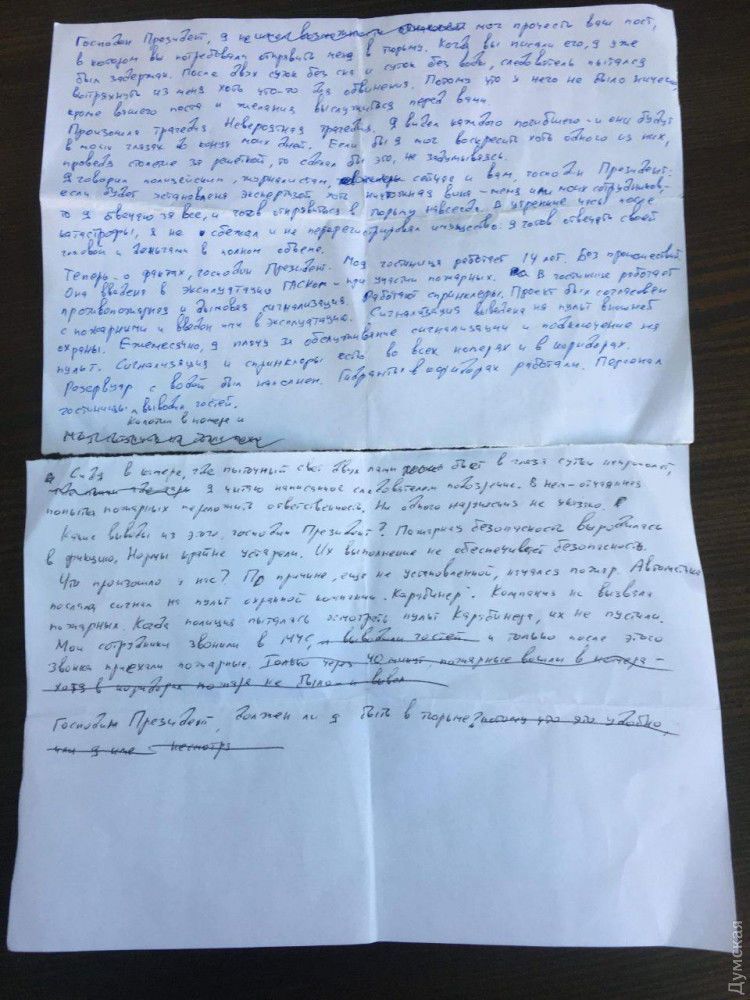 Господин Президент, я не мог прочесть ваш пост,
в котором вы потребовали отправить меня в тюрьму. Когда вы писали его, я уже
был задержан. После двух суток без сна и суток без воды, следователь пытался
вытряхнуть из меня хоть что-то для обвинения. Потому что у него не было ничего,
кроме вашего поста и желания выслужиться перед вами
Произошла трагедия. Невероятная трагедия. Я видел каждого погибшего - и они будут
в моих глазах до конца моих дней. Если бы я мог воскресить хоть одного из них,
проведя столетие за решеткой, то сделал бы это, не задумываясь.
Я говорил полицейским, журналистам, сейчас и вам, господин Президент:
если будет установлена экспертизой хоть ничтожная вина - меня или моих сотрудников -
то я отвечаю за все, и готов отправиться в тюрьму навсегда. В утренние часы после
катастрофы, я не сбежал и не перерегистрировал имущество. Я готов отвечать своей
головой и деньгами в полном объеме.
Теперь - о фактах, господин Президент. Моя гостиница работает 14 лет. Без происшествий.
Она введена в эксплуатацию ГАСКом - при участии пожарных. В гостинице работает
противопожарная и дымовая сигнализация. Работают спринклеры. Проект был согласован
с пожарными и введен ими в эксплуатацию. Сигнализация выведена на пульт внешней
охраны. Ежемесячно, я плачу за обслуживание сигнализации и подключение на
пульт. Сигнализация и спринклеры есть во всех номерах и в коридорах.
Резервуар с водой был наполнен. Гидранты в коридорах работали. Персонал
гостиницы выводил гостей.
колотил в номера и
Сидя в камере, где пыточный свет двух ламп бьет в глаза сутки напролет,
я читаю написанное следователем подозрение. В нем - отчаянная
попытка пожарных переложить ответственность. Ни одного нарушения не указано.
Какие выводы из этого, господин Президент? Пожарная безопасность выродилась
в фикцию. Нормы крайне устарели. Их выполнение не обеспечивает безопасность.
Что произошло у нас? По причине, еще не установленной, начался пожар. Автоматика
послала сигнал на пульт охранной компании "Карабинер". Компания не вызвала
пожарных. Когда полиция пыталась осмотреть пульт Карабинера, их не пустили.
Мои сотрудники звонили в МЧС, и выводили гостей и только после этого
звонка приехали пожарные. Только через 40 минут пожарные вошли в номера -
хотя в коридорах пожара не было - и вывел
Господин Президент, должен ли я быть в тюрьме? потому что это удобно,
или я иле несмотря
Думская